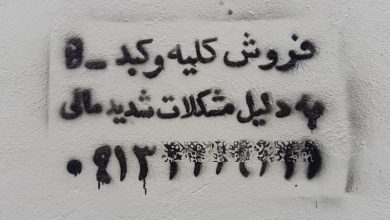 فروش کلیه و کبد _ O
به دلیل مشکلات شدید مالی
۰۹۱۳